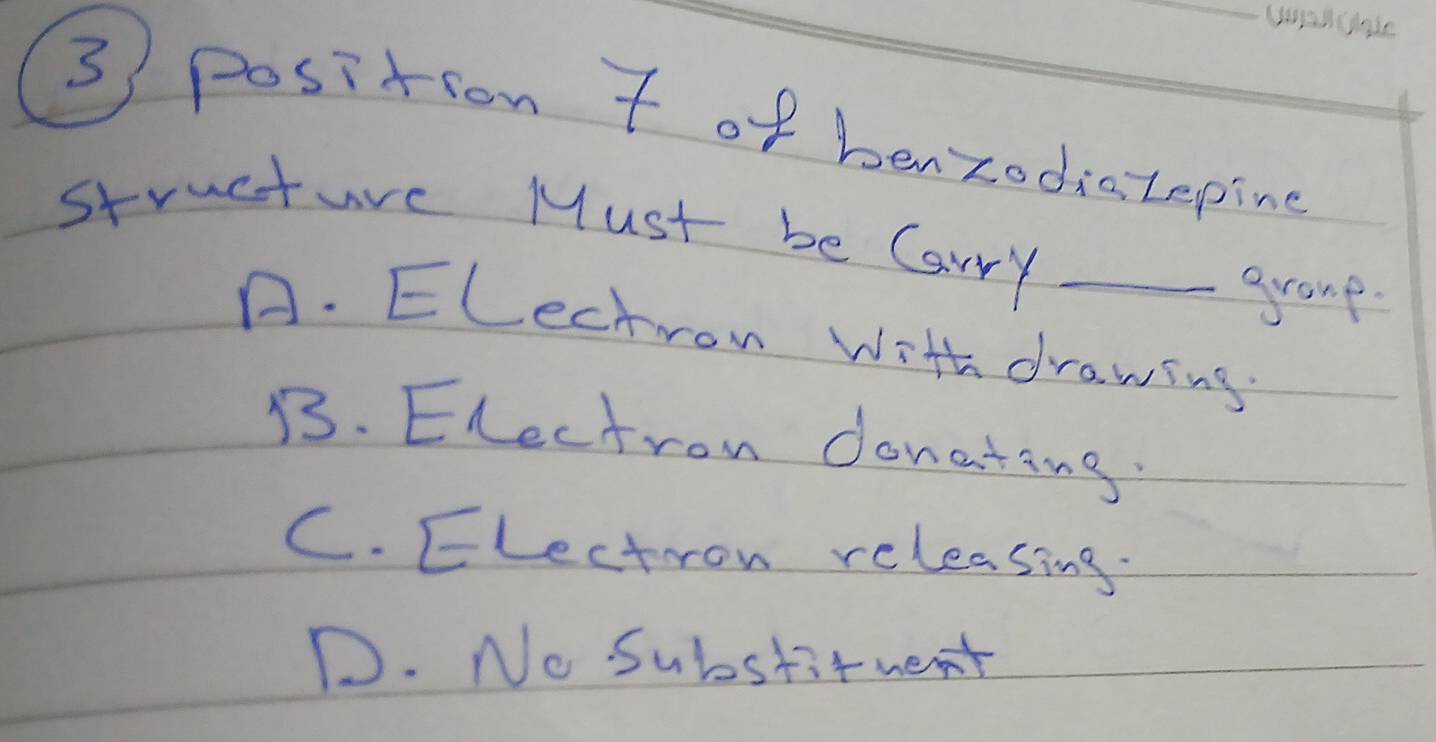 عنوان الدرس
3 Position 7 of benzodiazepine
structure Must be Carry ___ group.
A. Electron withdrawing.
B. Electron donating.
C. Electron releasing.
D. No substituent